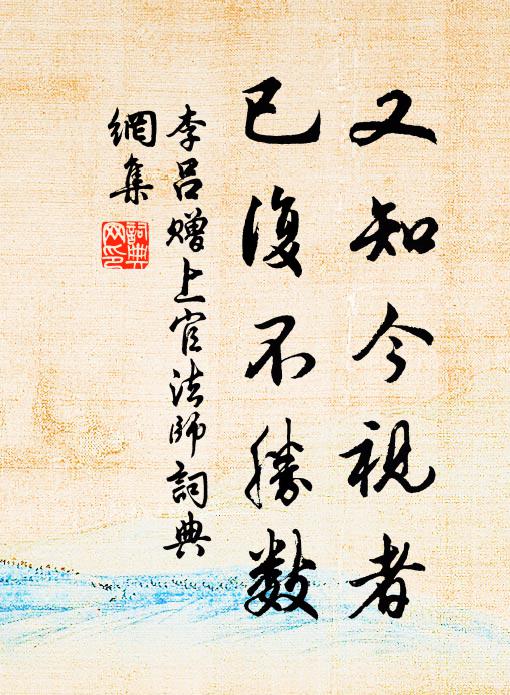 又知今視者
已復不勝數
李呂贈上官法師詞典
網集
詞典
网印